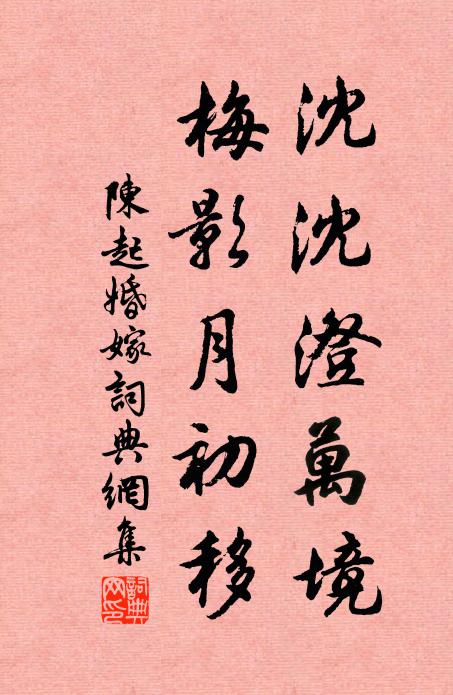 沈沈澄萬境
梅影月初移
陳起婚嫁詞典網集
詞典网印